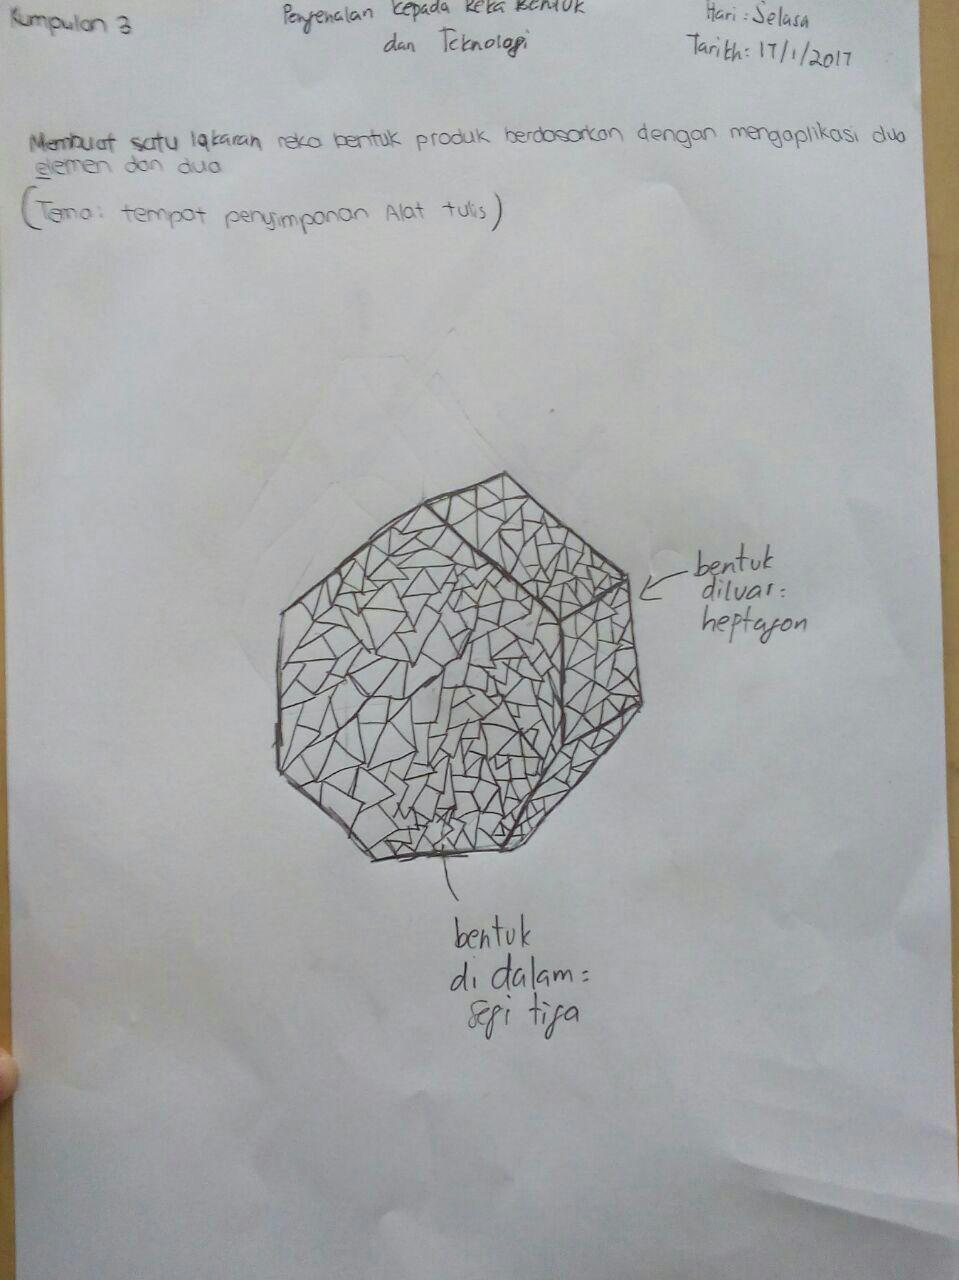 Kumpulan 3
Pengenalan kepada Reka Bentuk
dan Teknologi
Hari : Selasa
Tarikh: 17/1/2017
Membuat satu lakaran reka bentuk produk berdasarkan dengan mengaplikasi dua
elemen dan dua
(Tema: tempat penyimpanan Alat tulis)
bentuk
diluar:
heptagon
bentuk
di dalam:
segi tiga